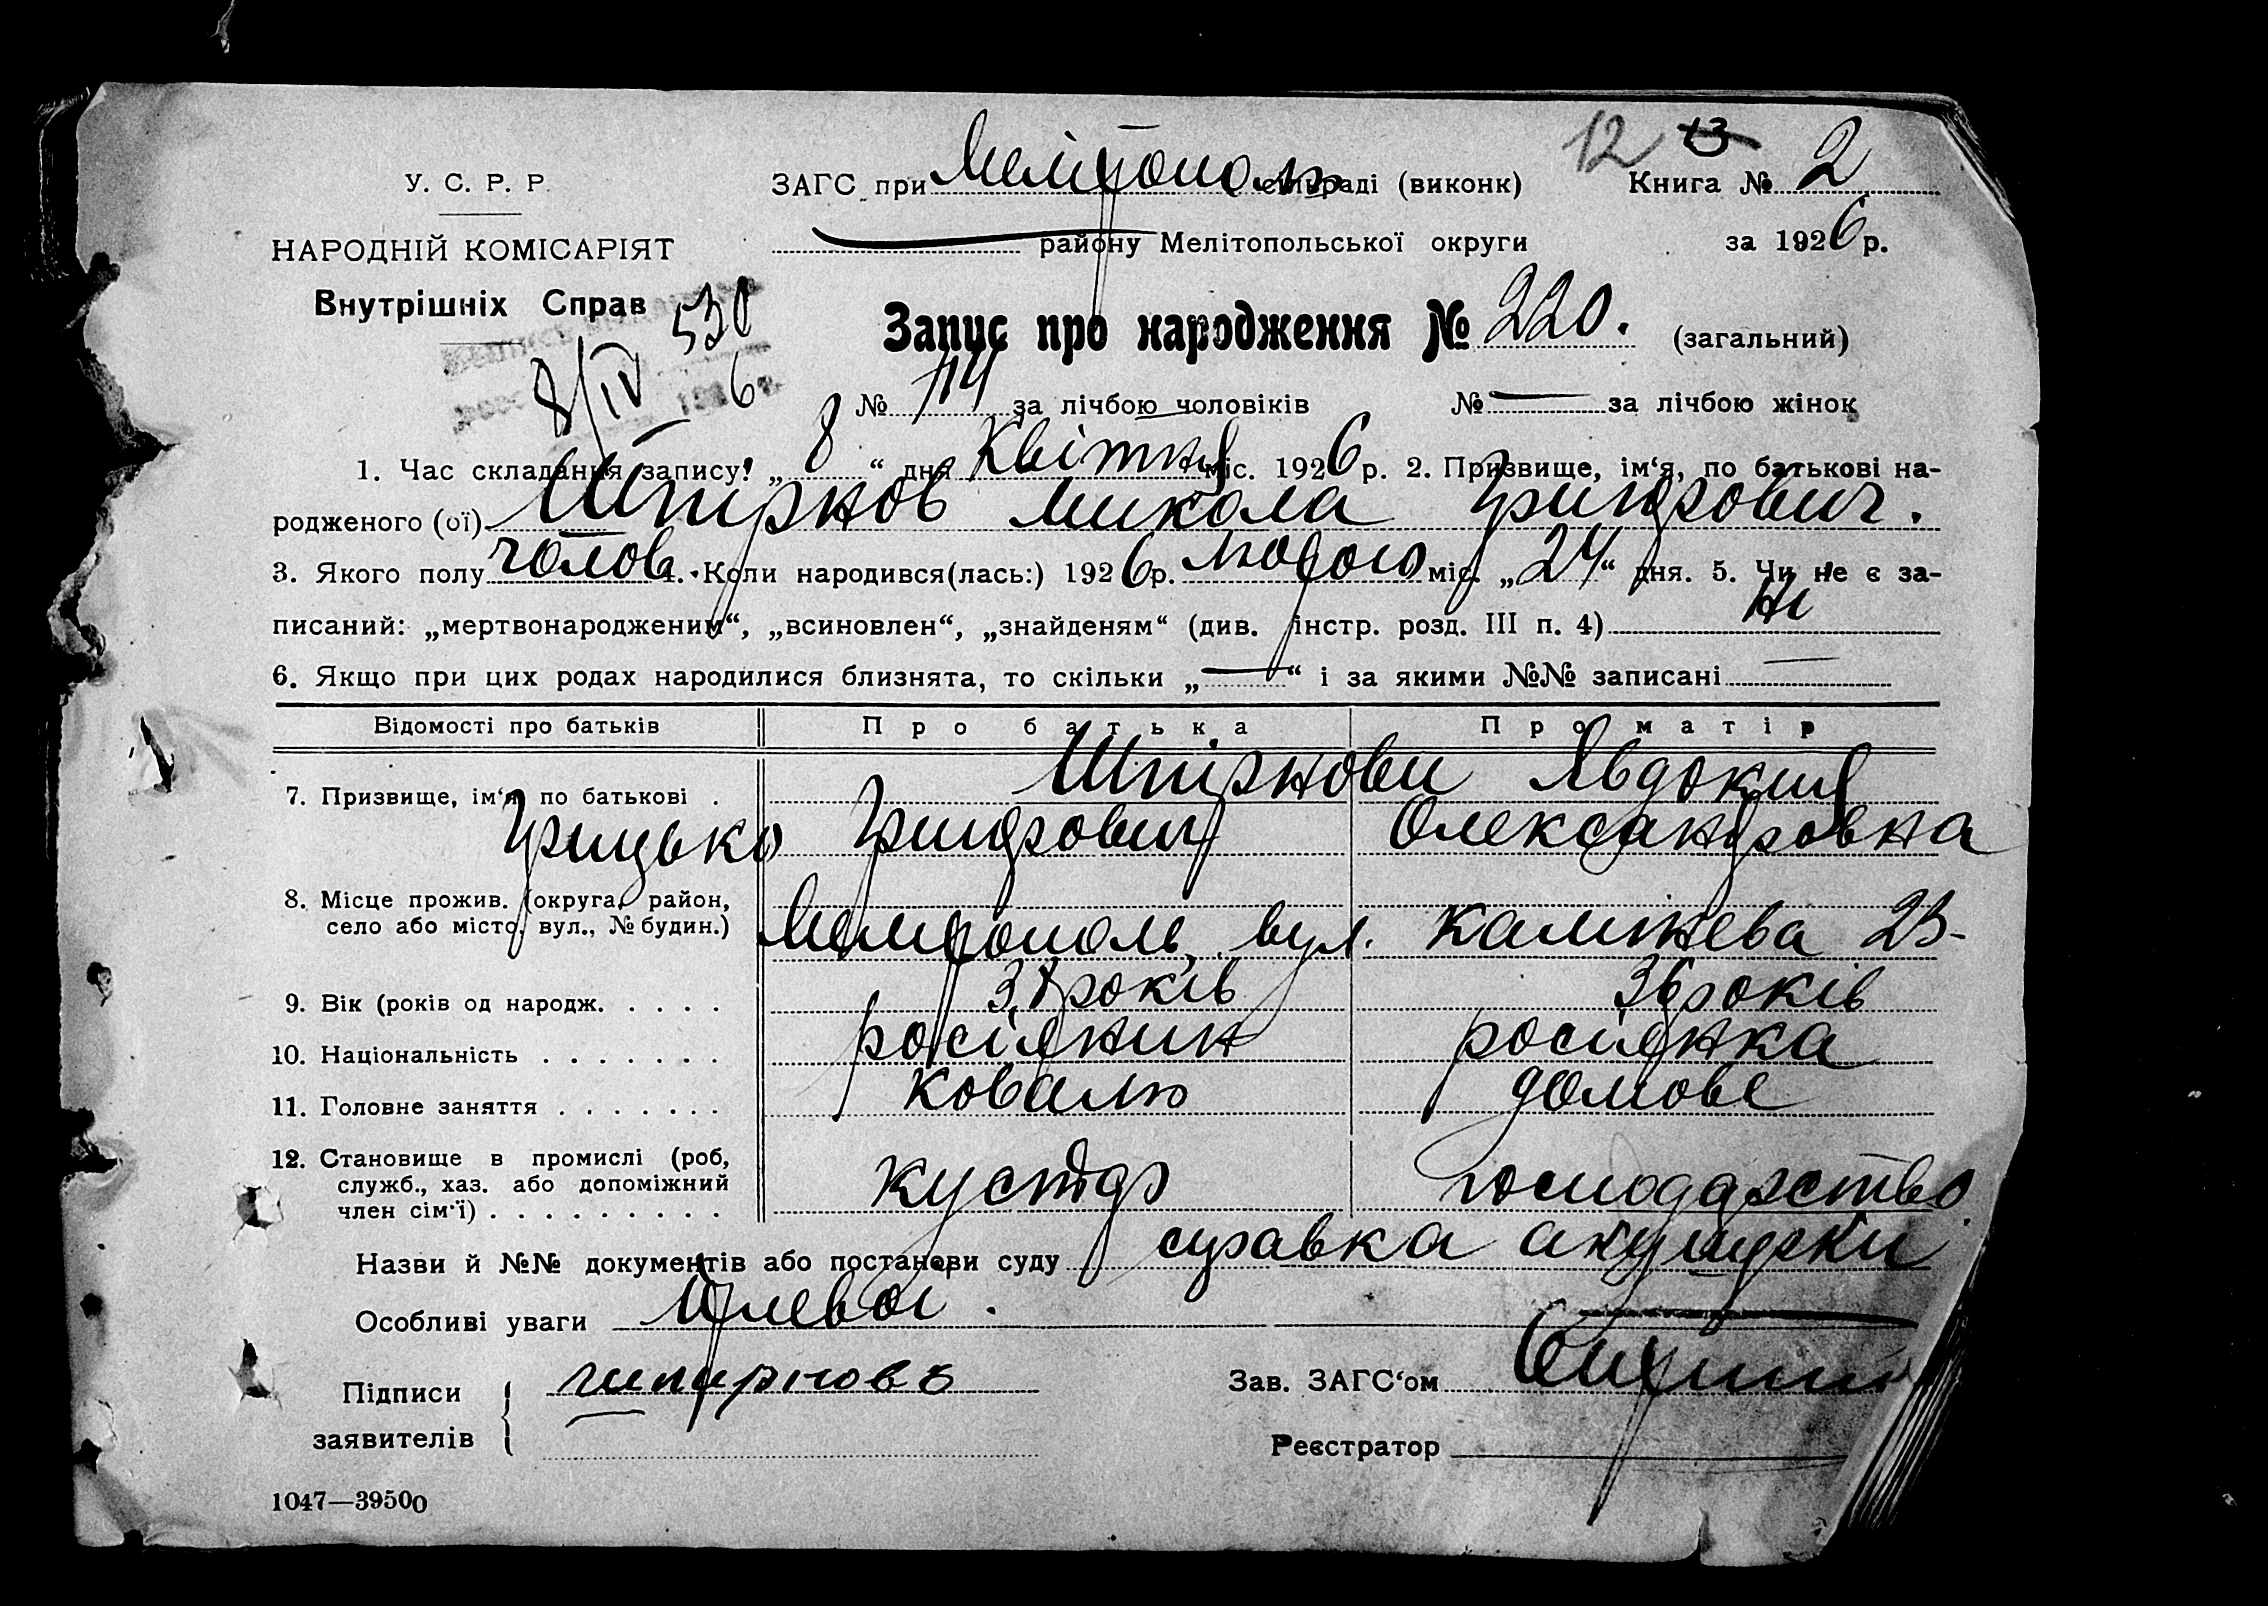 12 13
У. С. Р. Р. ЗАГС при Мелітополь сільраді (виконк) Книга № 2
НАРОДНІЙ КОМІСАРІЯТ району Мелітопольської округи за 1926 р.
Внутрішніх Справ 530
Запис про народження № 220. (загальний)
8/IV 6
№ 114 за лічбою чоловіків № — за лічбою жінок
1. Час складання запису: „8“ дня Квітня міс. 1926 р. 2. Призвище, ім‘я, по батькові на-
родженого (ої) Штірнов Микола Григорович.
3. Якого полу чолов. 4. Коли народився(лась:) 1926 р. Лютого міс. „24“ дня. 5. Чи не є за-
писаний: „мертвонародженим“, „всиновлен“, „знайденям“ (див. інстр. розд. III п. 4) Ні
6. Якщо при цих родах народилися близнята, то скільки „—“ і за якими №№ записані —
Відомості про батьків Про батька Про матір
7. Призвище, ім‘я, по батькові . Штірнови Явдокия
Грицько Григорович Олександровна
8. Місце прожив. (округа, район,
село або місто, вул., № будин.) Мелітополь, вул. Калінжева 23-
9. Вік (років од народж. . . . . 38 років 36 років
10. Національність . . . . . . . росіянин росіянка
11. Головне заняття . . . . . . . коваль домове
12. Становище в промислі (роб, служб., хаз. або допоміжний
член сім‘ї) . . . . . . . . . кустар господарство
Назви й №№ документів або постанови суду справка акушерки
Особливі уваги
Підписи
заявителів
Зав. ЗАГС‘ом
Реєстратор
1047—39500